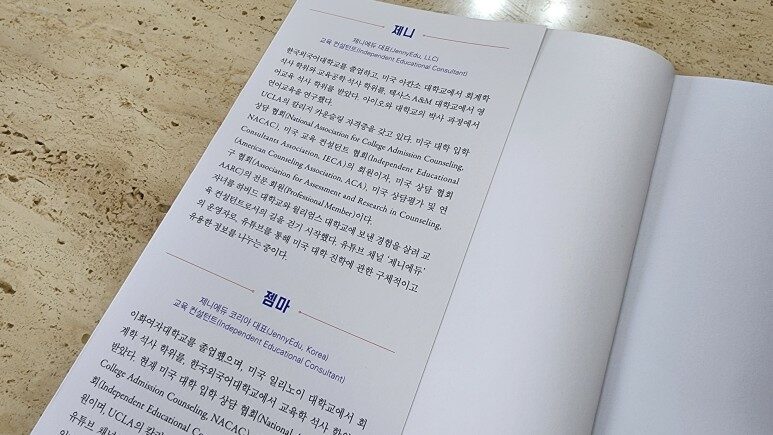 제니
제니에듀 대표(JennyEdu, LLC)
교육 컨설턴트(Independent Educational Consultant)
한국외국어대학교를 졸업하고, 미국 아칸소 대학교에서 회계학
석사 학위와 교육공학 석사 학위를, 텍사스 A&M 대학교에서 영
어교육 석사 학위를 받았다. 아이오와 대학교의 박사 과정에서
언어교육을 연구했다.
UCLA의 칼리지 카운슬링 자격증을 갖고 있다. 미국 대학 입학
상담 협회(National Association for College Admission Counseling,
NACAC), 미국 교육 컨설턴트 협회(Independent Educational
Consultants Association, IECA)의 회원이자, 미국 상담 협회
(American Counseling Association, ACA), 미국 상담평가 및 연
구 협회(Association for Assessment and Research in Counseling,
AARC)의 전문 회원(Professional Member)이다.
자녀를 하버드 대학교와 윌리엄스 대학교에 보낸 경험을 살려 교
육 컨설턴트로서의 길을 걷기 시작했다. 유튜브 채널 '제니에듀'
의 운영자로, 유튜브를 통해 미국 대학 진학에 관한 구체적이고
유용한 정보를 나누는 중이다.
젬마
제니에듀 코리아 대표(JennyEdu, Korea)
교육 컨설턴트(Independent Educational Consultant)
이화여자대학교를 졸업했으며, 미국 일리노이 대학교에서 회
계학 석사 학위를, 한국외국어대학교에서 교육학 석사 학위를
받았다. 현재 미국 대학 입학 상담 협회(National
College Admission Counseling, NACAC)
회(Independent Educational
원이며, UCLA의
유튜브 채널